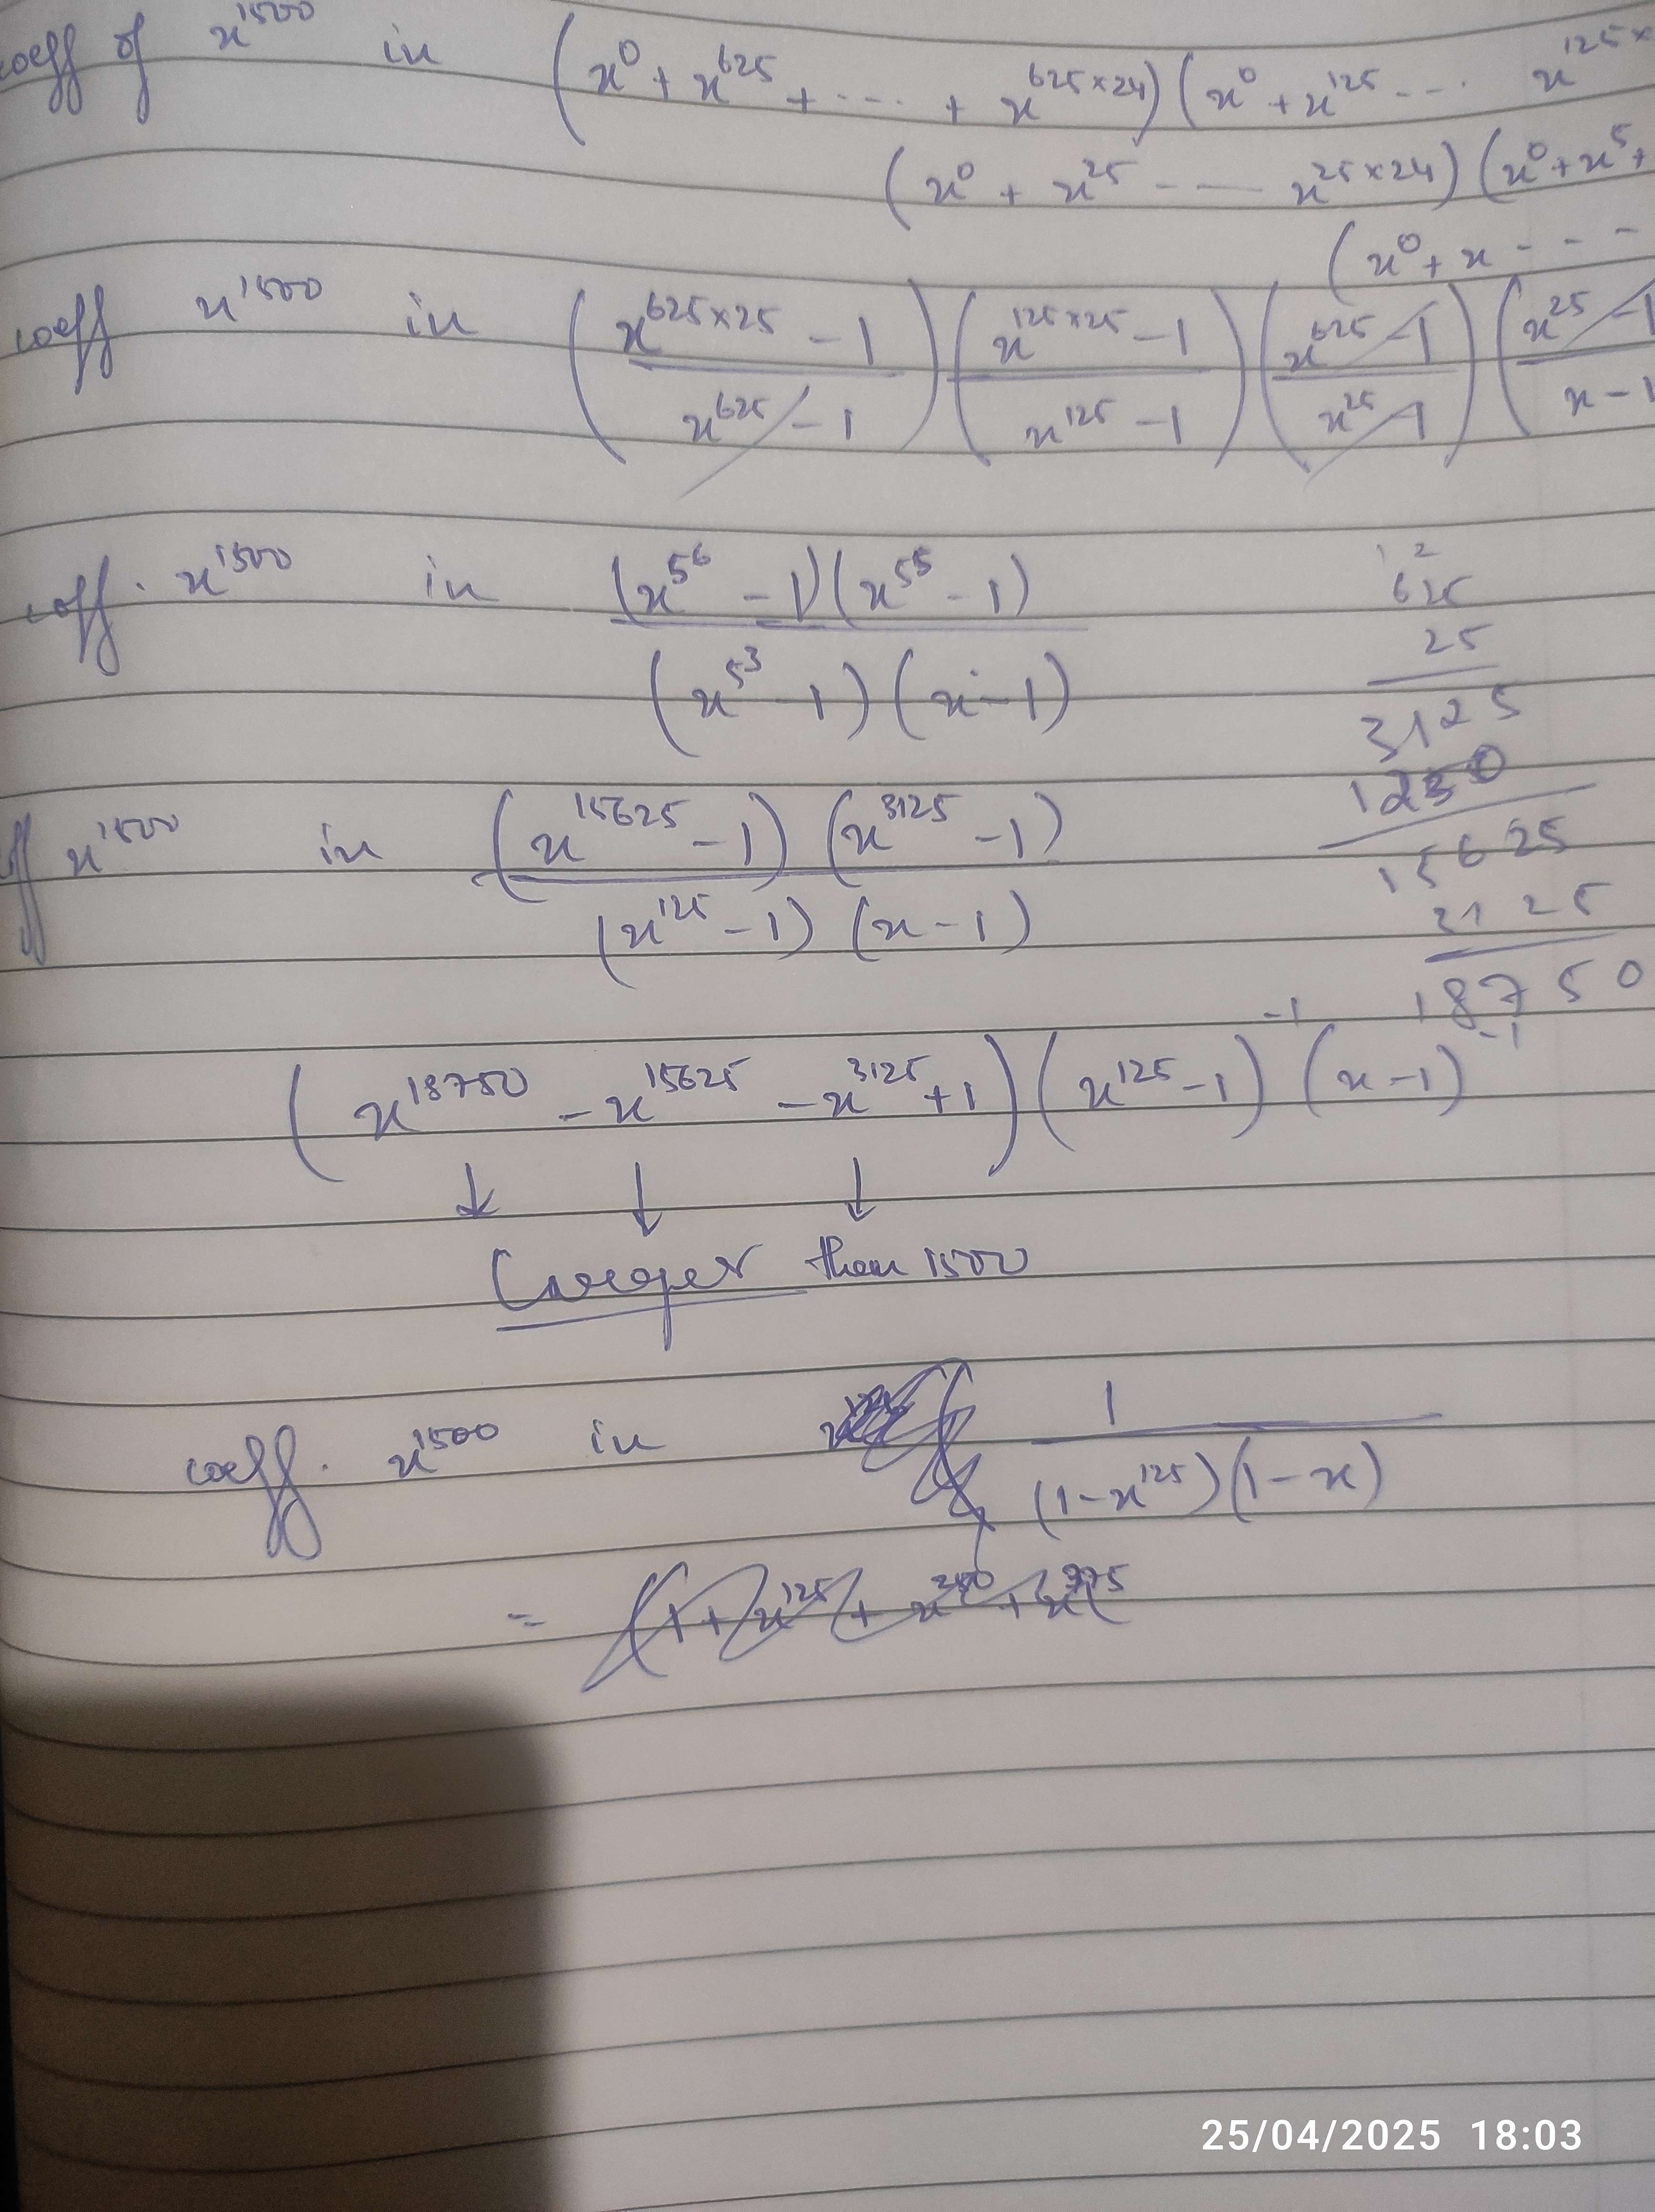 coeff of x^1500 in (x^0 + x^625 + .... + x^(625×24)) (x^0 + x^125 ... x^(125×
(x^0 + x^25 - - — x^(25×24)) (x^0 + x^5 +
(x^0 + x - - -
coeff x^1500 in ((x^(625×25) - 1)/(x^625 - 1)) ((x^(125×25) - 1)/(x^125 - 1)) ((x^625 - 1)/(x^25 - 1)) ((x^25 - 1)/(x - 1
coff. x^1500 in ((x^5^6 - 1)(x^5^5 - 1))/((x^5^3 - 1)(x - 1))
1 2
625
25
3125
1250
15625
3125
18750
ff x^1500 in ((x^15625 - 1)(x^3125 - 1))/((x^125 - 1)(x - 1))
(x^18750 - x^15625 - x^3125 + 1)(x^125 - 1)^-1 (x - 1)^-1
↓ ↓ ↓
Larger than 1500
coeff. x^1500 in 1/((1 - x^125)(1 - x))
=
25/04/2025 18:03